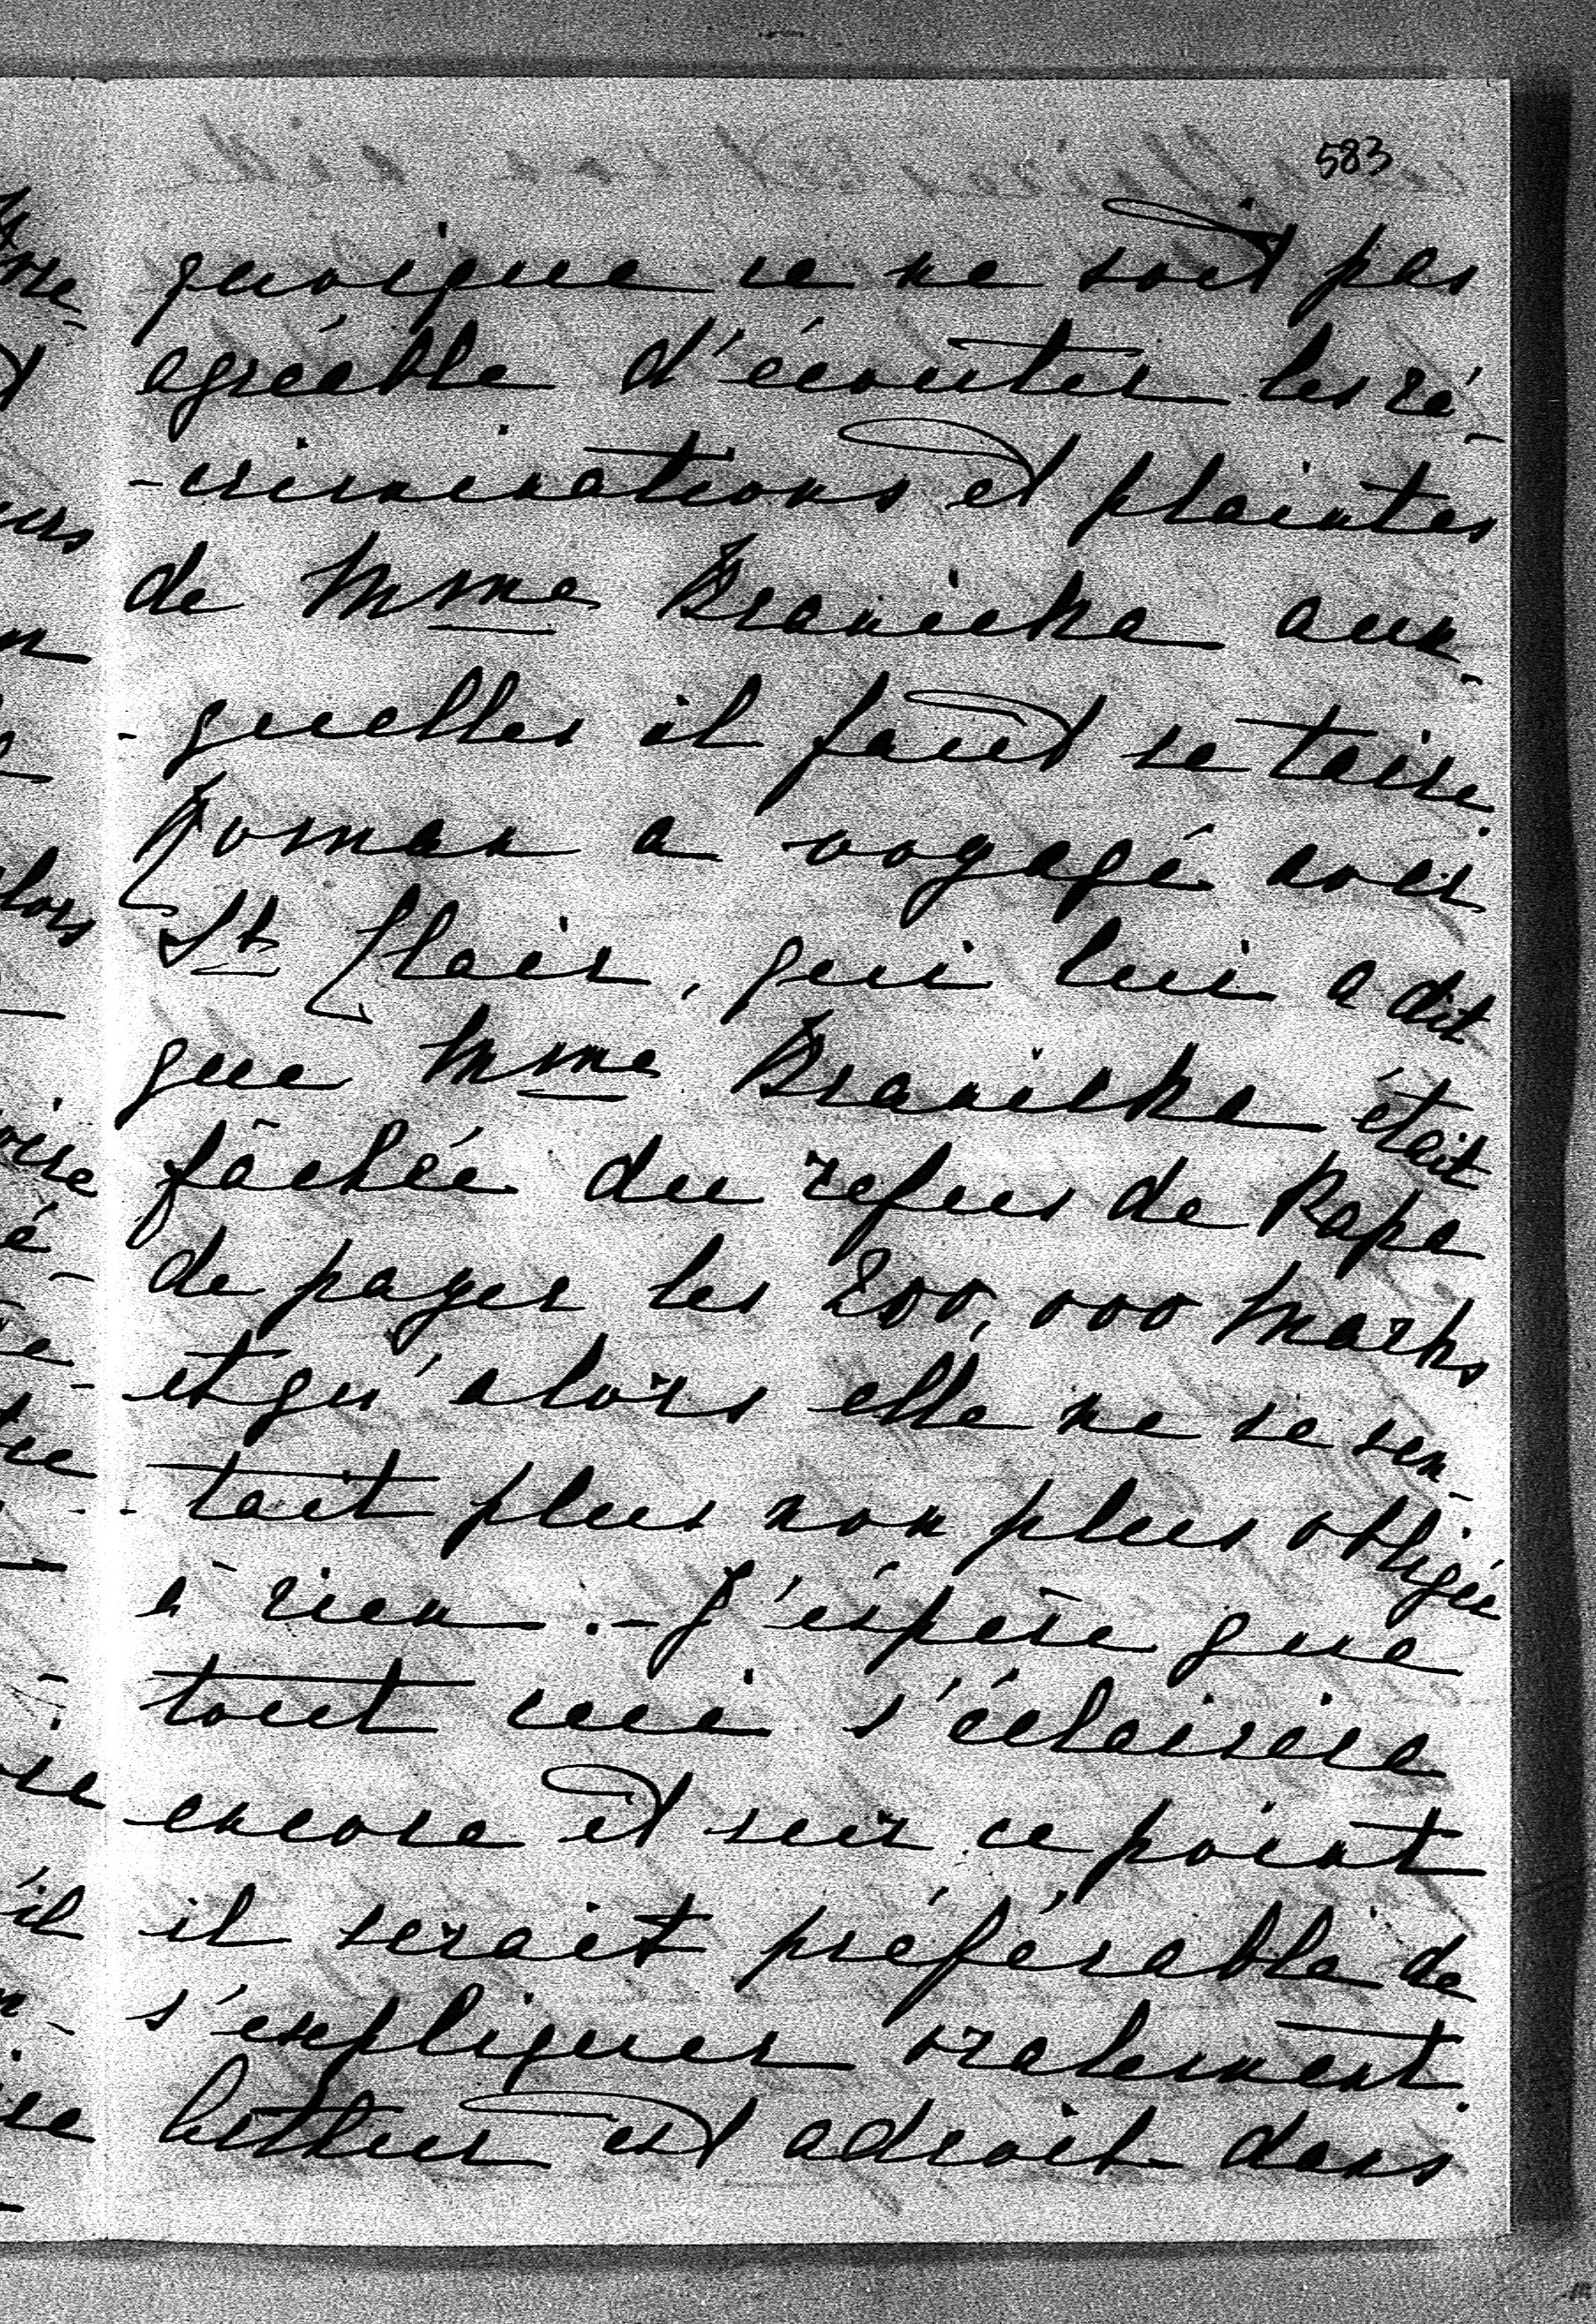 583
quoique ce ne soit pas
agréable d'écouter les ré-
-criminations et plaintes
de Mme Branicka aux-
-quelles il faut se taire.
Roman a voyagé avec
St Clair, qui lui a dit
que Mme Branicka était
fâchée du refus de Papa
de payer les 200,000 Marks
et qu'alors elle ne se sen-
-tait plus non plus obligée
à rien. - J'éspère que
tout ceci s'éclaircira
encore et sur ce point
il serait préférable de
s'expliquer oralement.
est adroit dans